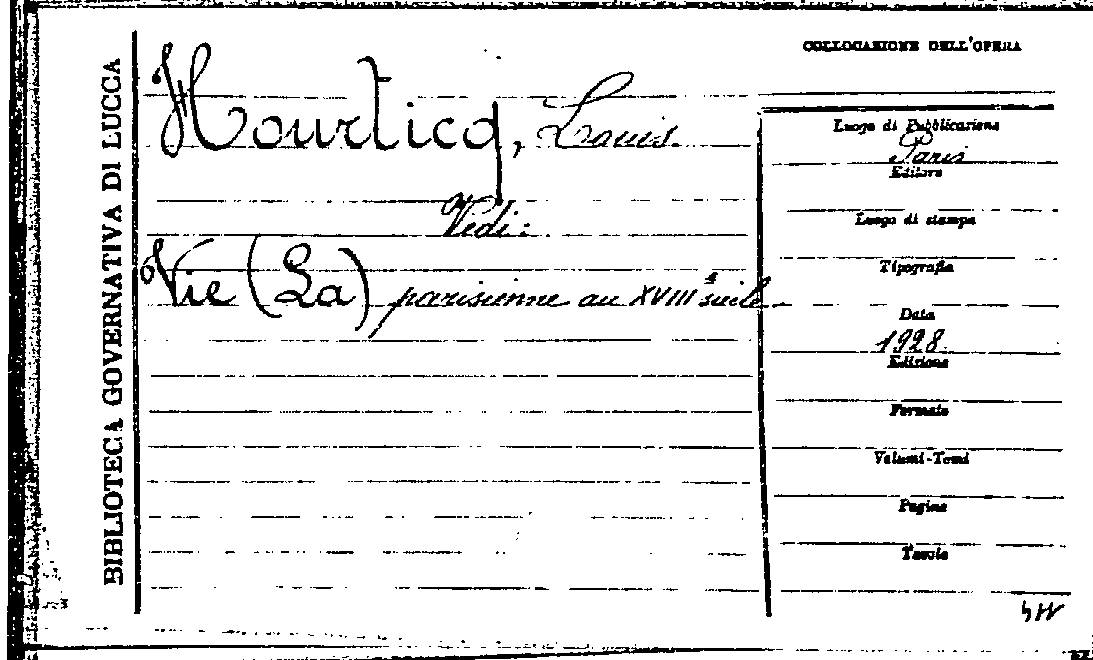 BIBLIOTECA GOVERNATIVA DI LUCCA
COLLOCAZIONE DELL'OPERA
Hourticq, Louis.
Vedi:
Vie (La) parisienne au XVIIIᵉ siècle
Luogo di Pubblicazione
Paris
Editore
Luogo di stampa
Tipografia
Data
1928
Edizione
Formato
Volumi-Tomi
Pagine
Tavole